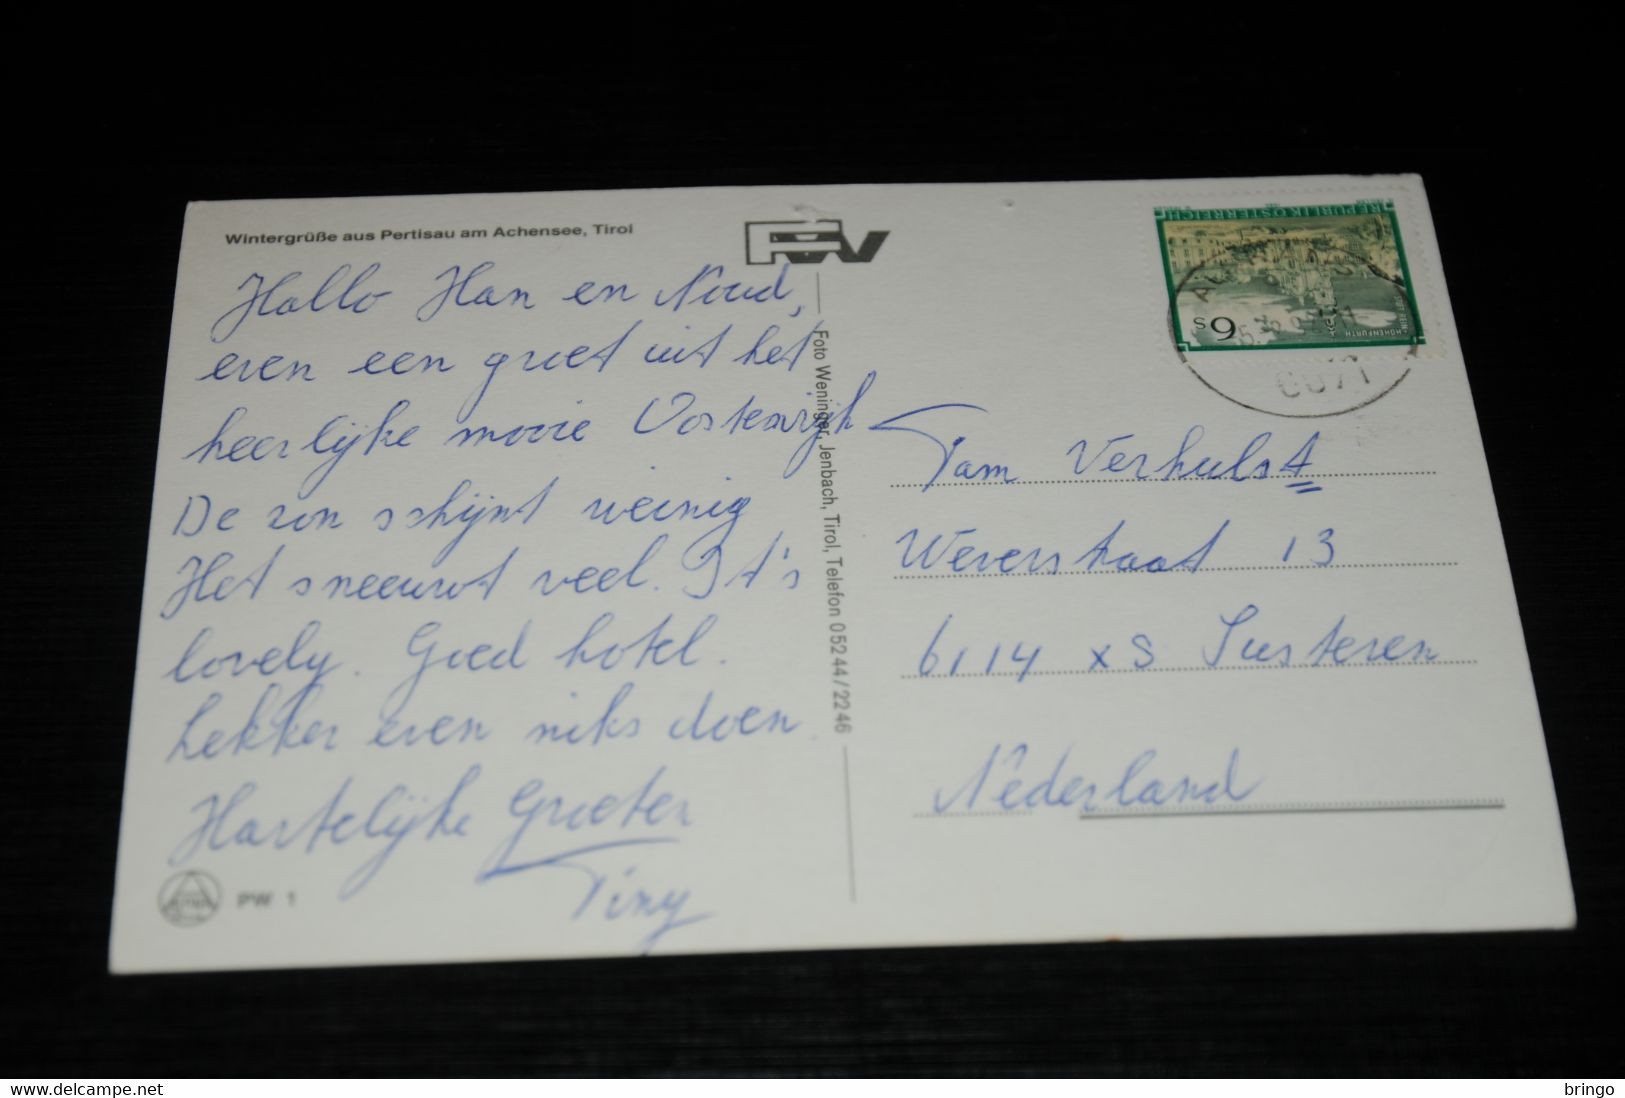 Wintergrüße aus Pertisau am Achensee, Tirol
Hallo Han en Noud,
even een groet uit het
heerlijke mooie Oostenrijk
De zon schijnt weinig
Het sneeuwt veel. It's
lovely. Goed hotel.
Lekker even niks doen.
Hartelijke Groeten
Tiny
PW 1
Foto Weninger, Jenbach, Tirol, Telefon 05244/2246
REPUBLIK ÖSTERREICH
STIFT REIN-
HOHENFURTH
S 6
Fam Verhulst
Weverstraat 13
6114 XS Susteren
Nederland
bringo